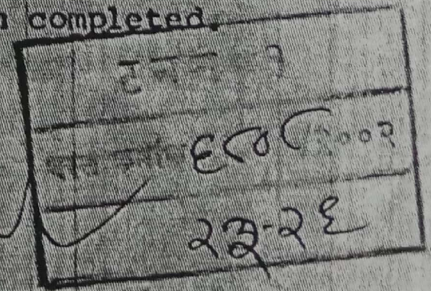 completed.
ट न न - १
६८०८/२००२
२३-२६